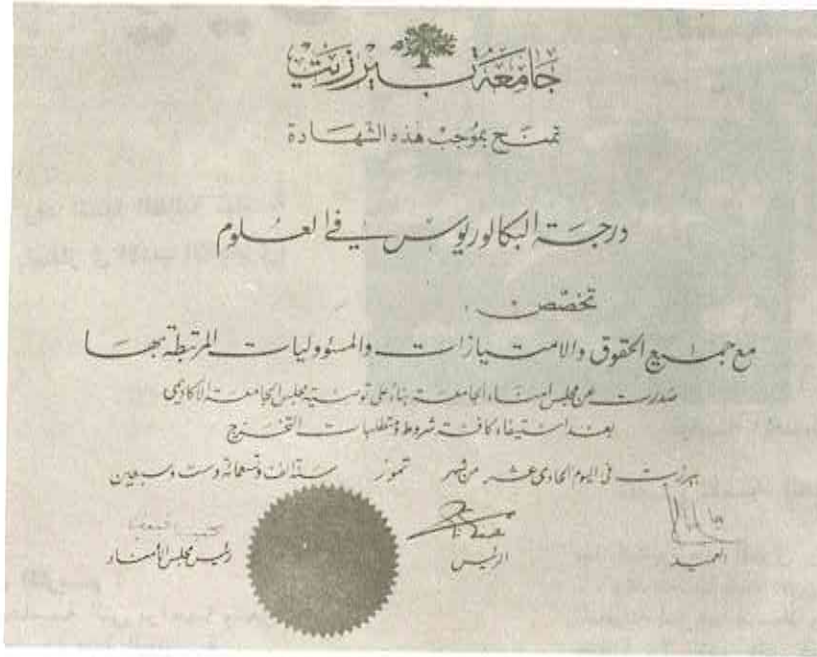 جامعة بيرزيت
تمنح بموجب هذه الشهادة
درجة البكالوريوس في العلوم
تخصص
مع جميع الحقوق والامتيازات والمسؤوليات المرتبطة بها
صدرت عن مجلس امناء الجامعة بناء على توصية مجلس الجامعة الاكاديمي
بعد استيفاء كافة شروط ومتطلبات التخرج
بيرزيت في اليوم الحادي عشر من شهر تموز سنة الف وتسعمائة وست وسبعين
العميد الرئيس رئيس مجلس الأمناء